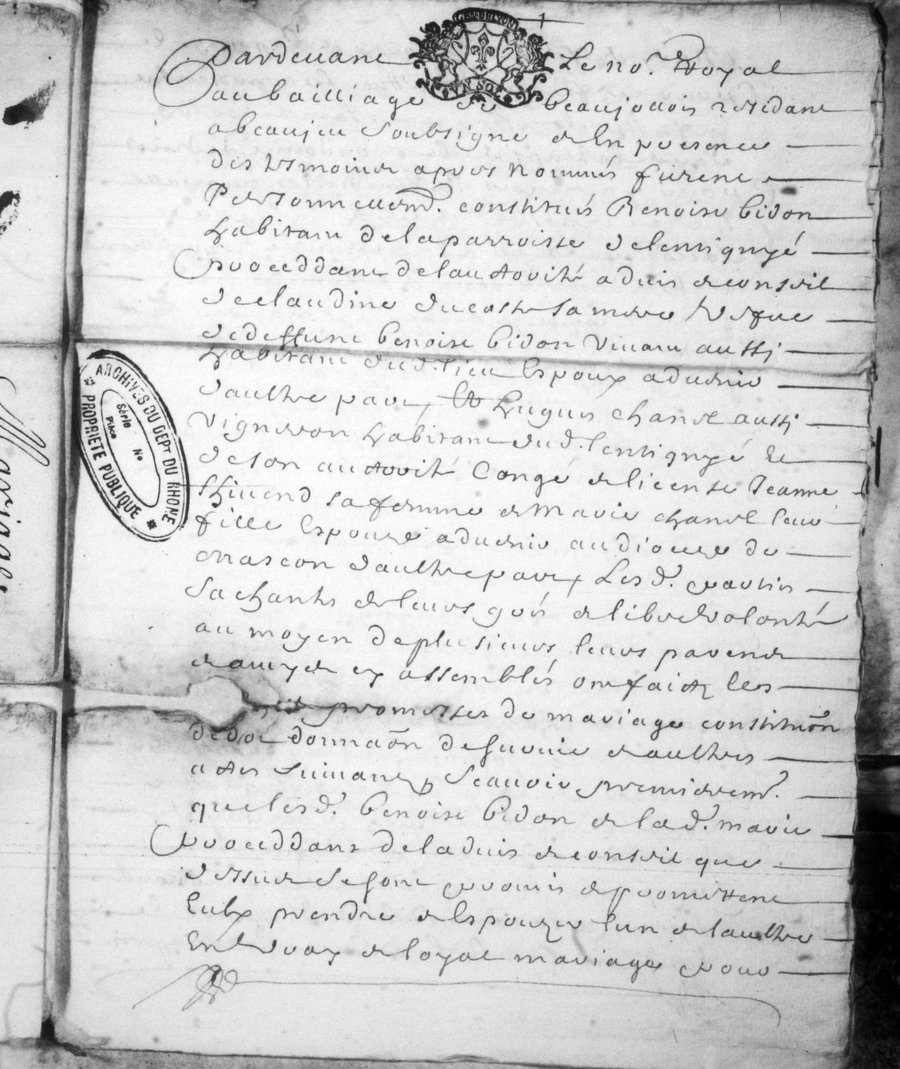 GEN. DE LYON
UN SOL
1
Pardevant Le no.re Royal
au bailliage de beaujolois residant
a beaujeu soubsigné et En presence
des tesmoins apres Nommés furent
Personnellem.t constitués Benoist bidon
habitant de la parroisse de lentignyé
proceddant de l'authorité advis et conseil
de claudine ducoste sa mere vefve
de deffunt benoist bidon vivant aussi
habitant dud. lieu Espoux advenir
d'aultre part, Et hugues chanel aussi
vigneron habitant dud. lentignyé Et
de son authorité Congé et license Jeanne
sa femme et Marie chanel leur
fille Espouze advenir au dioceze de
mascon d'aultre part, Les d. parties
sachants et leurs gréz et libre volonté
au moyen de plusieurs leurs parens
et amys en assemblés ont faict les
promesses de mariage constitution
de dot donnaõn de survie et aultres
actes suivant Scavoir premierem.t
que les d. benoist bidon et la d. marie
proceddants de l'advis et conseil que
dessus se sont promis et promettent
Eulx prendre et Espouzer l'un et l'aultre
En vray et loyal mariage pour
ARCHIVES DU DÉPT DU RHONE
PROPRIÉTÉ PUBLIQUE
Série
Pièce No
Mariage